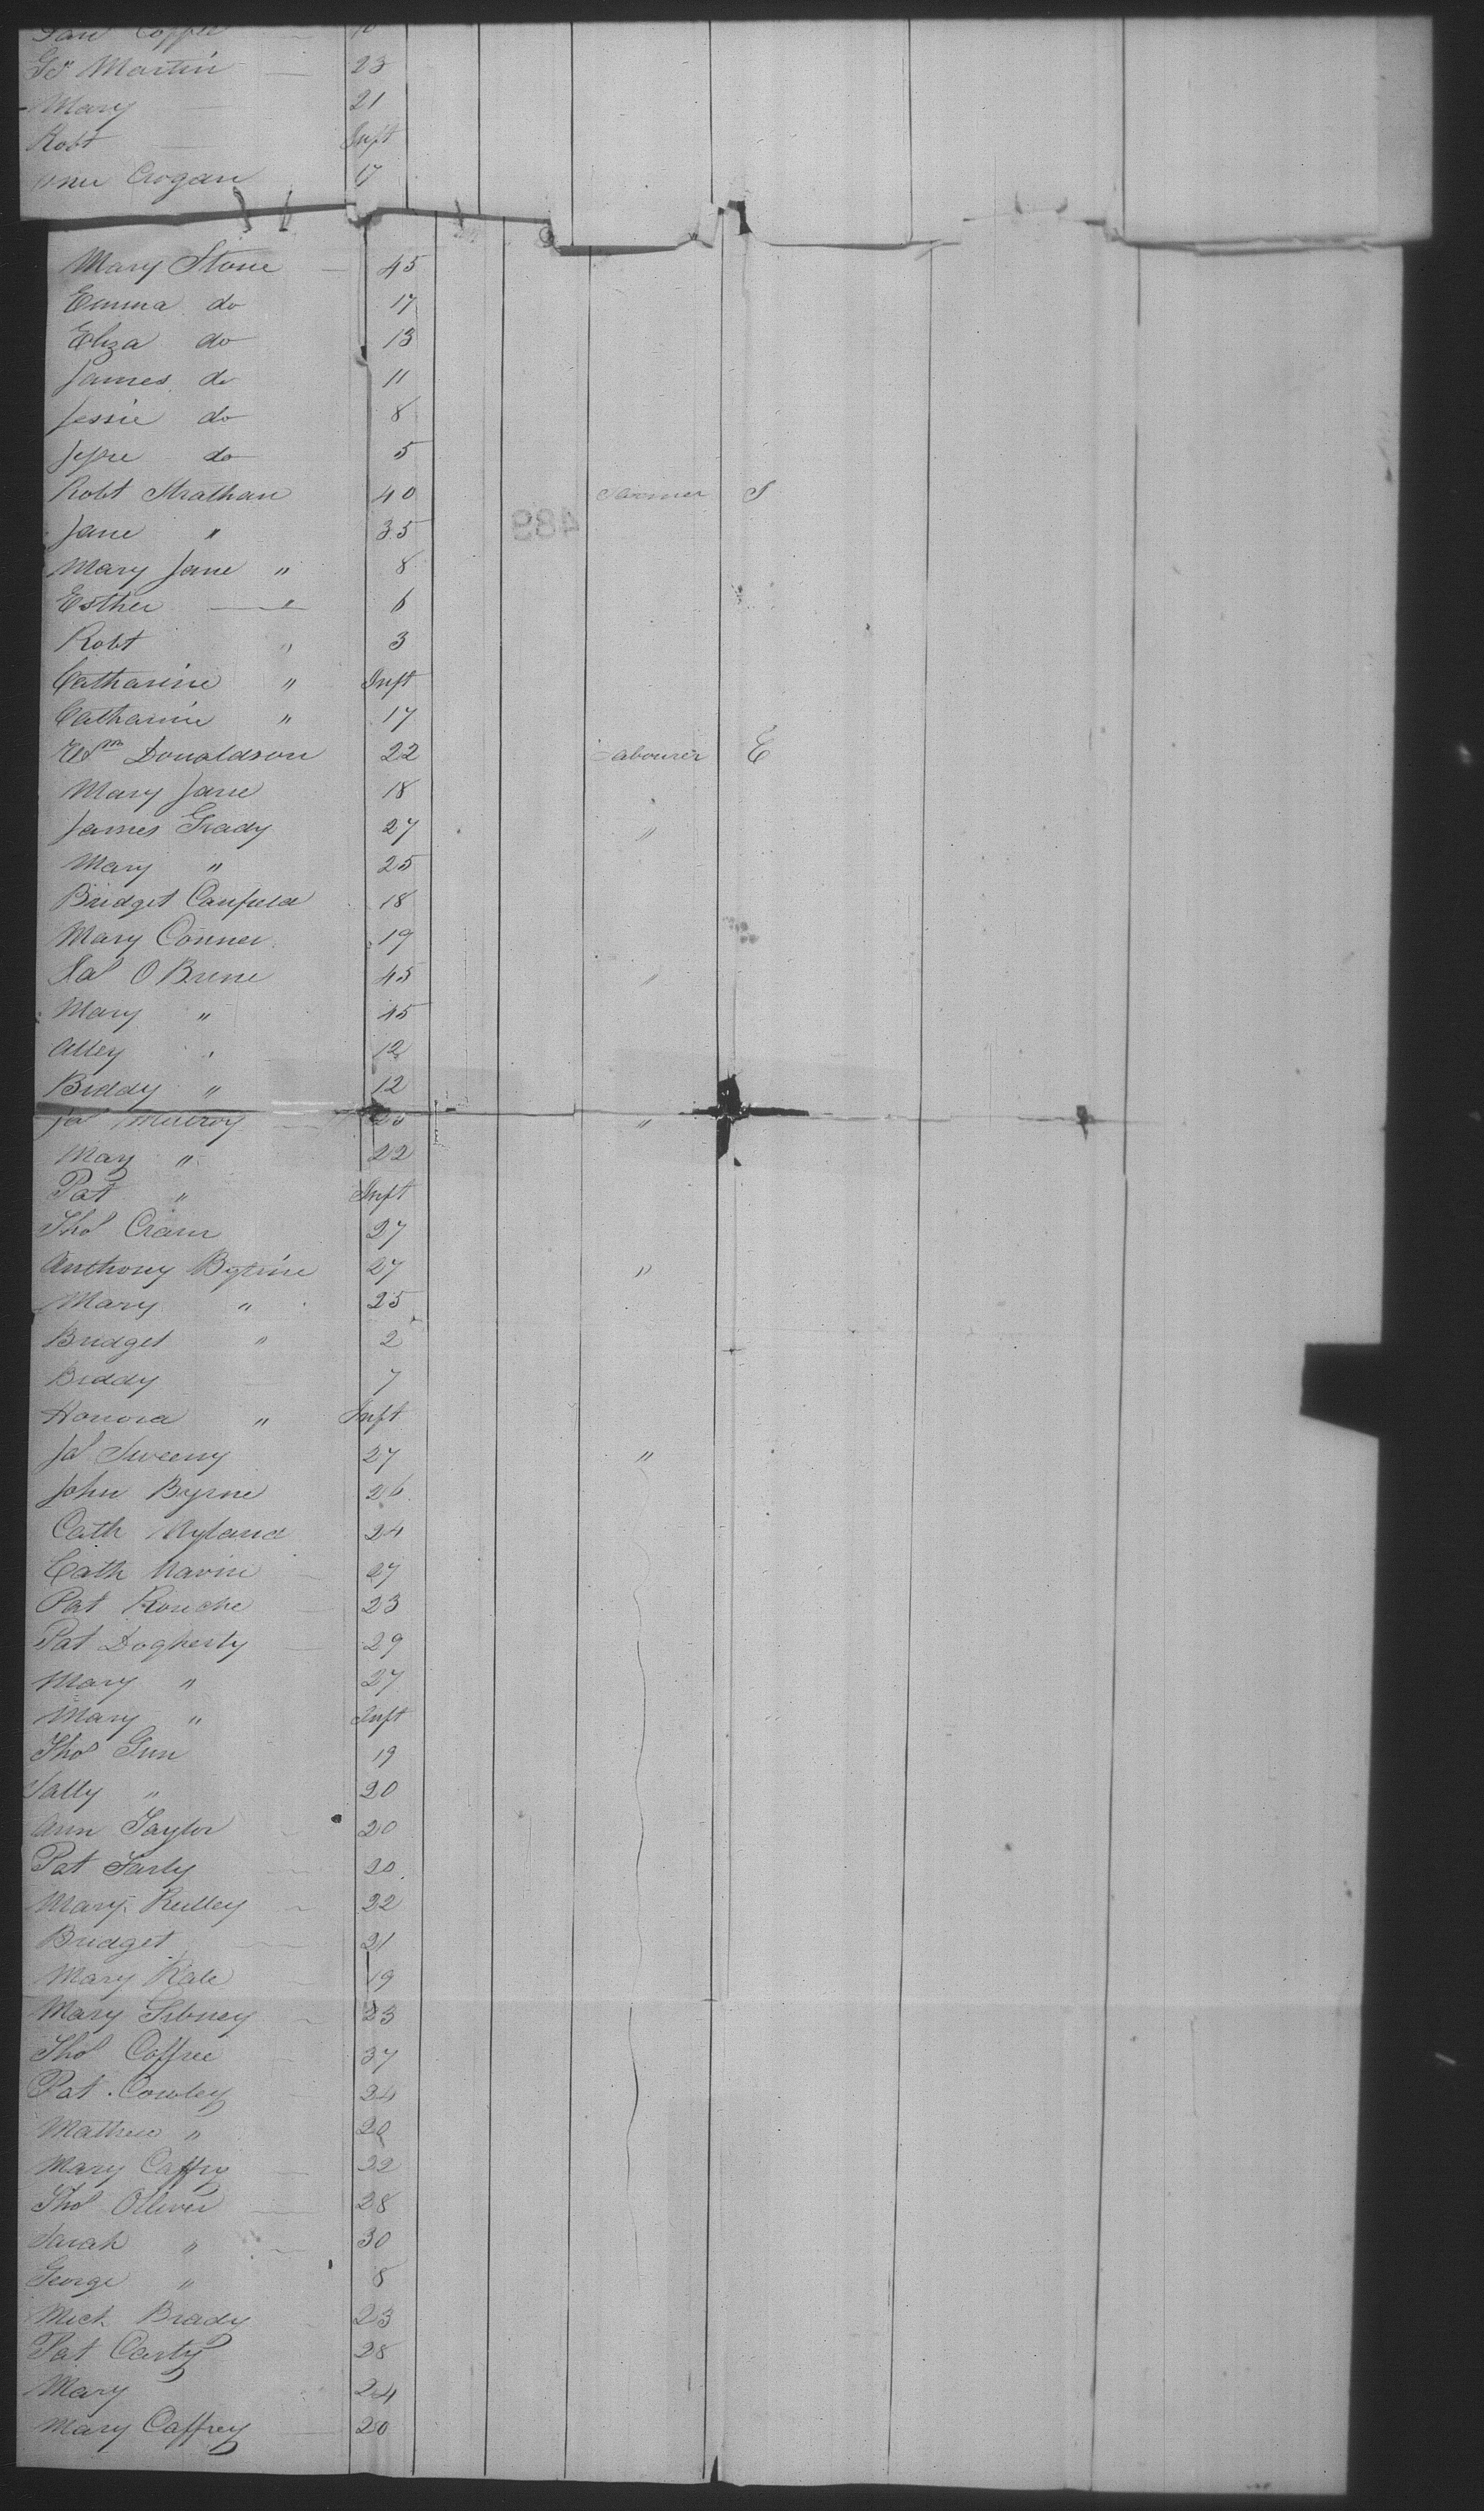 Martin 23
Mary 21
Robt Inft
Crogan 17
Mary Stone 45
Emma do 17
Eliza do 13
James do 11
Jessie do 8
Jesse do 5
Robt Strathan 40 Farmer S
Jane " 35
Mary Jane " 8
Esther " 6
Robt " 3
Catharine " Inft
Catharine " 17
Wm Donaldson 22 Labourer E
Mary Jane 18
James Grady 27 "
Mary " 25
Bridget Canfield 18
Mary Conner 19
O Brine 45 "
Mary " 45
Alley " 12
Biddy " 12
Jas Mulroy "
Mary " 22
Pat " Inft
Thos Crain 27
Anthony Byrine 27 "
Mary " 25
Bridget " 2
Biddy 7
Honora " Inft
Jas Sweeny 27 "
John Byrne 26
Cath Nyland 24
Cath Navin 27
Pat Rouche 23
Pat Dogherty 29
Mary " 27
Mary " Inft
Thos Gun 19
Sally " 20
Ann Taylor 20
Pat Farly 20
Mary Reilley 22
Bridget 21
Mary Kale 19
Mary Gibney 23
Thos Coffree 37
Pat Cowley 24
Mathew " 20
Mary Caffry 22
Thos Olliver 28
Sarah " 30
George " 8
Mich Brady 23
Pat Carty 28
Mary 24
Mary Caffrey 20